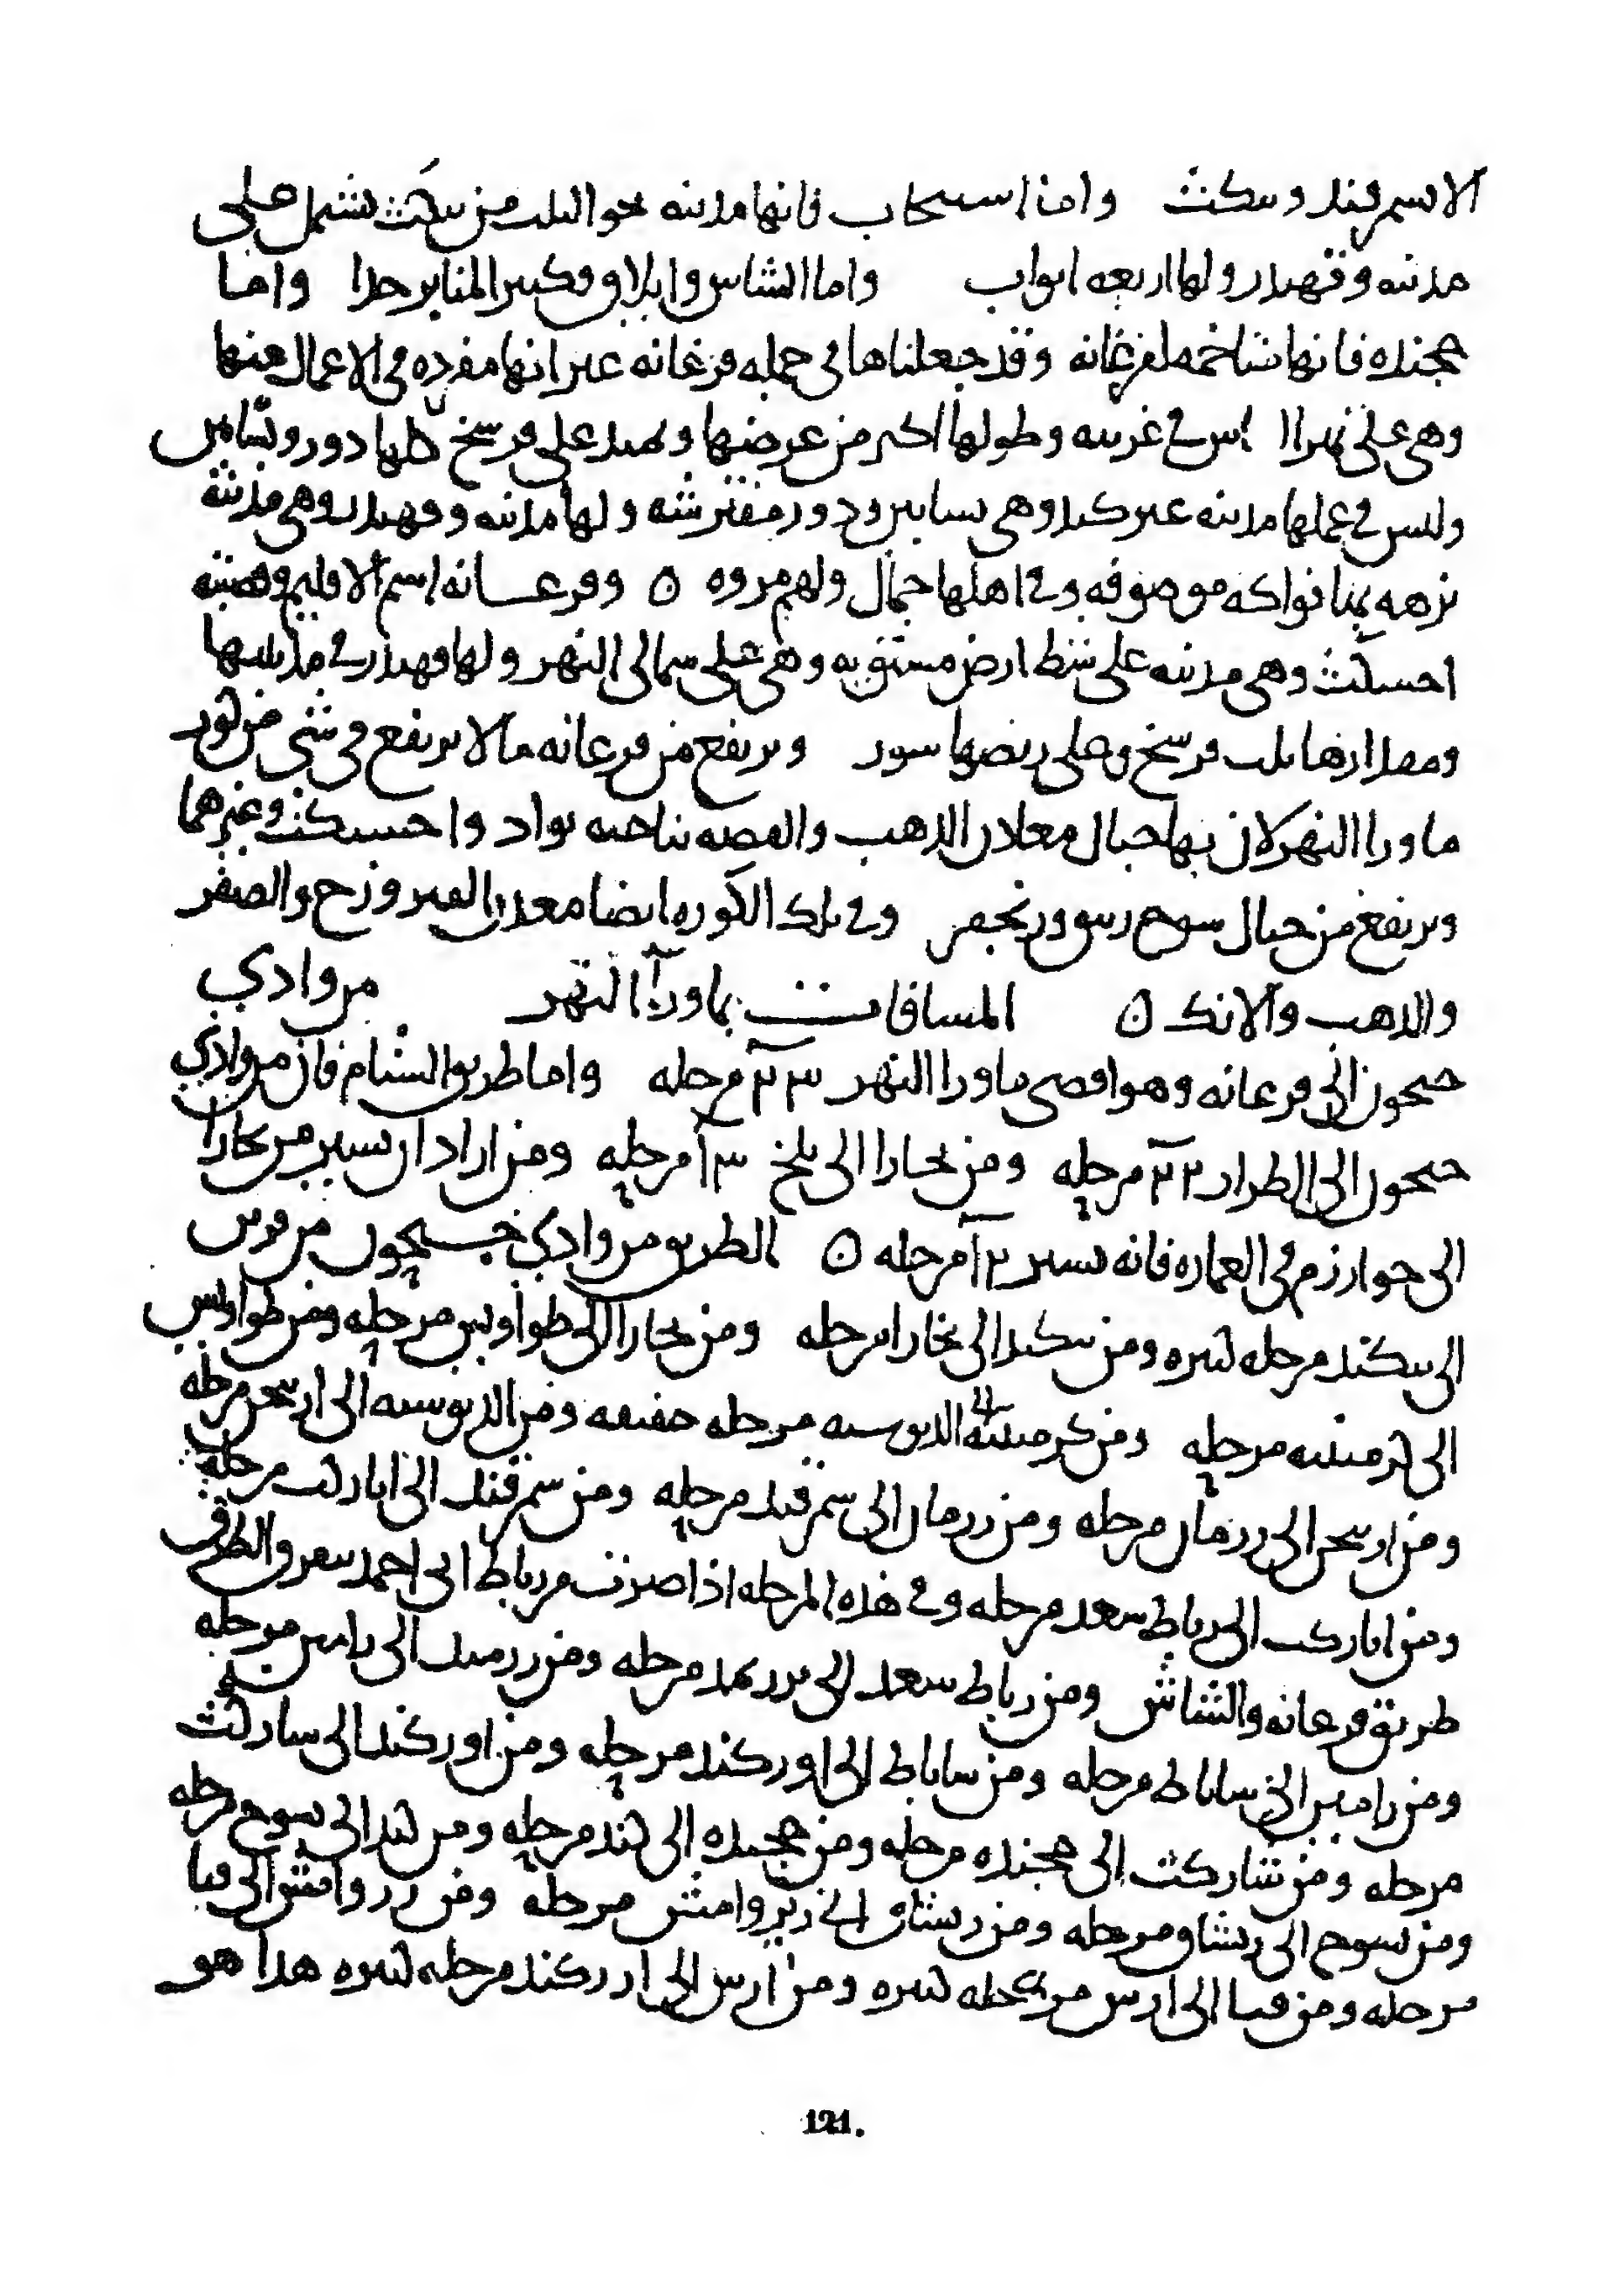 الا بسمرقند وبنكث واما اسبيجاب فانها مدينه نحو الثلث من بنكث تشتمل على
مدينه وقهندز ولها اربعه ابواب واما الشاش وايلاق فكبير المنابر جدا واما
خجنده فانها متاخمه لفرغانه وقد جعلناها في جمله فرغانه غير انها مفرده في الاعمال عنها
وهي على نهر الشاس في غربيه وطولها اكبر من عرضها وتمتد على فرسخ كلها دور وبساتين
وليس في عملها مدينه غير كند وهي بساتين ودور مفترشه ولها مدينه وقهندز وهي مدينه
نزهه بها فواكه موصوفه وفي اهلها جمال ولهم مروه ٥ وفرغانه اسم الاقليم وقصبته
اخسيكث وهي مدينه على شط ارض مستويه وهي على شمالي النهر ولها قهندز في مدينتها
ومقدارها ثلث فرسخ وعلى ربضها سور ويرتفع من فرغانه ما لا يرتفع في شي من كور
ما ورا النهر لان بها جبال معادن الذهب والفضه بناحيه نواد واخسيكث وغيرهما
ويرتفع من جبال سوخ زيبق ويرتفع وفي تلك الكوره ايضا معدن الفيروزج والصفر
والذهب والانك ٥ المسافات بما ورا النهر من وادي
جيحون الى فرغانه وهو اقصى ماورا النهر ٢٣ مرحله واما طريق الشام فان من وادي
جيحون الى الطراز ٢٢ مرحله ومن بخارا الى بلخ ١٣ مرحله ومن اراد ان يسير من بخارا
الى خوارزم في العماره فانه يسير ١٢ مرحله ٥ الطريق من وادي جيحون من فربر
الى بيكند مرحله كبيره ومن بيكند الى بخارا مرحله ومن بخارا الى طواويس مرحله ومن طواويس
الى كرمينيه مرحله ومن كرمينيه الى الدبوسيه مرحله خفيفه ومن الدبوسيه الى اربنجن مرحله
ومن اربنجن الى زرمان مرحله ومن زرمان الى سمرقند مرحله ومن سمرقند الى اباركث مرحله
ومن اباركث الى رباط سعد مرحله وفي هذه المرحله اذا صرت من رباط ابي احمد يتفرق الطرق
طريق فرغانه والشاش ومن رباط سعد الى بورنمد مرحله ومن زرمند الى زامين مرحله
ومن زامين الى ساباط مرحله ومن ساباط الى اوركند مرحله ومن اوركند الى شاركث
مرحله ومن شاركث الى خجنده مرحله ومن خجنده الى كند مرحله ومن كند الى سوخ مرحله
ومن سوخ الى رشتان مرحله ومن رشتان الى زيروامش مرحله ومن زروامش الى قبا
مرحله ومن قبا الى اوس مرحله كبيره ومن اوس الى اوركند مرحله كبيره هذا هو
121.